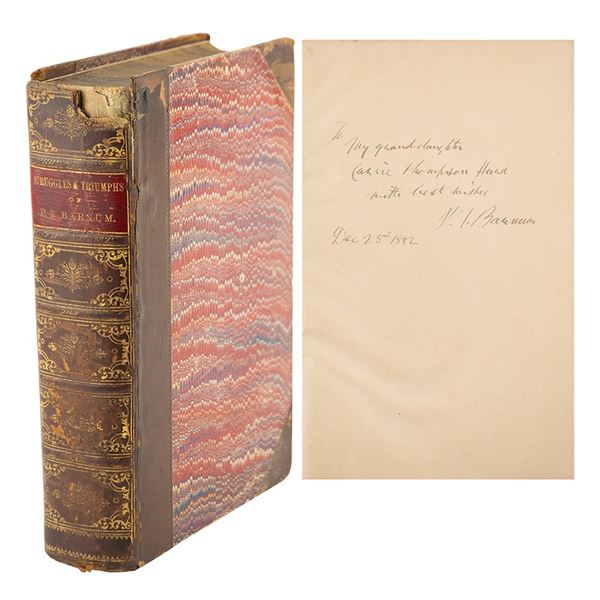 STRUGGLES & TRIUMPHS
OF
P. T. BARNUM.
To
My grand daughter
Carrie Thompson Hurd
with best wishes
P. T. Barnum
Dec 25th 1882